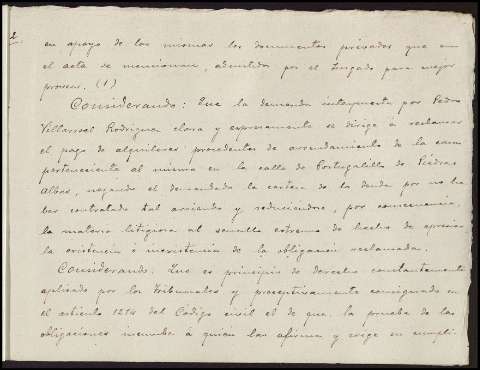 2
en apoyo de las mismas los documentos privados que en
el acta se mencionan, admitidos por el Juzgado para mejor
proveer. (1)
Considerando: Que la demanda interpuesta por Pedro
Villarroel Rodriguez clara y expresamente se dirige á reclamar
el pago de alquileres procedentes de arrendamiento de la casa
perteneciente al mismo en la calle de Portugalillo de Piedras
Albas, negando el demandado la certeza de la deuda por no ha
ber contratado tal arriendo y reduciendose, por consecuencia,
la materia litigiosa al sencillo extremo de hecho de apreciar
la existencia ó inexistencia de la obligación reclamada.
Considerando: Que es principio de derecho constantemente
aplicado por los Tribunales y preceptivamente consignado en
el artículo 1214 del Código civil el de que la prueba de las
obligaciones incumbe á quién las afirma y exige su cumpli-